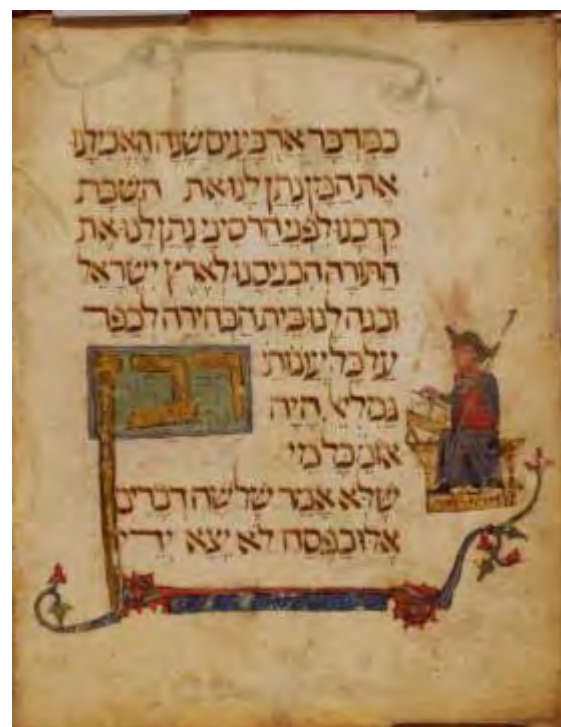 במדבר ארבעים שנה האכלנו
את המן נתן לנו את השבת
קרבנו לפני הר סיני נתן לנו את
התורה הכניסנו לארץ ישראל
ובנה לנו בית הבחירה לכפר
על כל עונות
רבן
גמליא היה
אומ כל מי
שלא אמר שלשה דברים
אלו בפסח לא יצא ידי